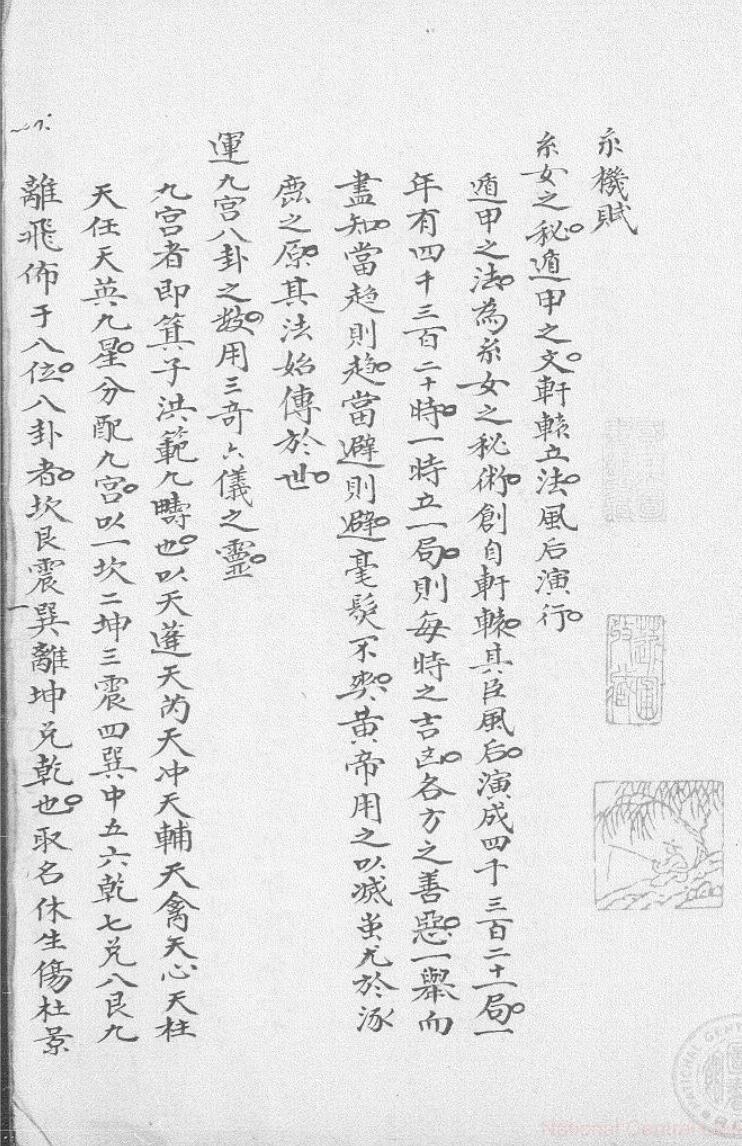 玄機賦
玄女之秘。遁甲之文。軒轅立法。風后演行。
遁甲之法。為玄女之秘術。創自軒轅。其臣風后。演成四千三百二十一局。一
年有四千三百二十時。一時立一局。則每時之吉凶。各方之善惡。一舉而
盡知。當趨則趨。當避則避。毫髮不爽。黃帝用之以滅蚩尤於涿
鹿之原。其法始傳於世。
運九宮八卦之數。用三奇六儀之靈。
九宮者即箕子洪範九疇也。以天蓬天芮天冲天輔天禽天心天柱
天任天英九星。分配九宮。以一坎二坤三震四巽中五六乾七兌八艮九
離飛佈于八位。八卦者。坎艮震巽離坤兌乾也。取名休生傷杜景
National Central